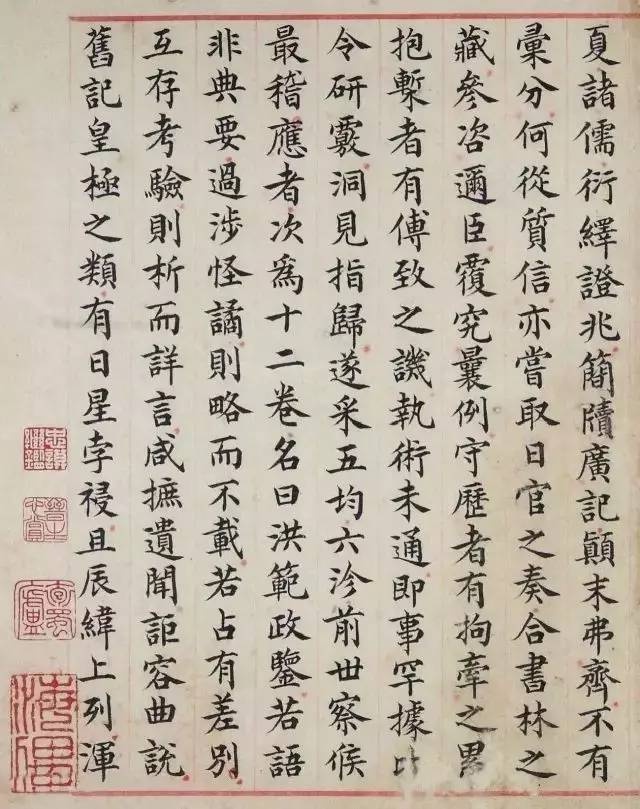 夏諸儒衍繹證兆簡牘廣記顛末弗齊不有
彙分何從質信亦嘗取日官之奏合書林之
藏參咨邇臣覆究曩例守歷者有拘牽之累
抱槧者有傅致之譏執術未通即事罕據比
令研覈洞見指歸遂采五均六沴前世察候
最稽應者次爲十二卷名曰洪範政鑒若語
非典要過涉怪譎則略而不載若占有差別
互存考驗則析而詳言咸摭遺聞詎容曲說
舊記皇極之類有日星孛祲且辰緯上列渾